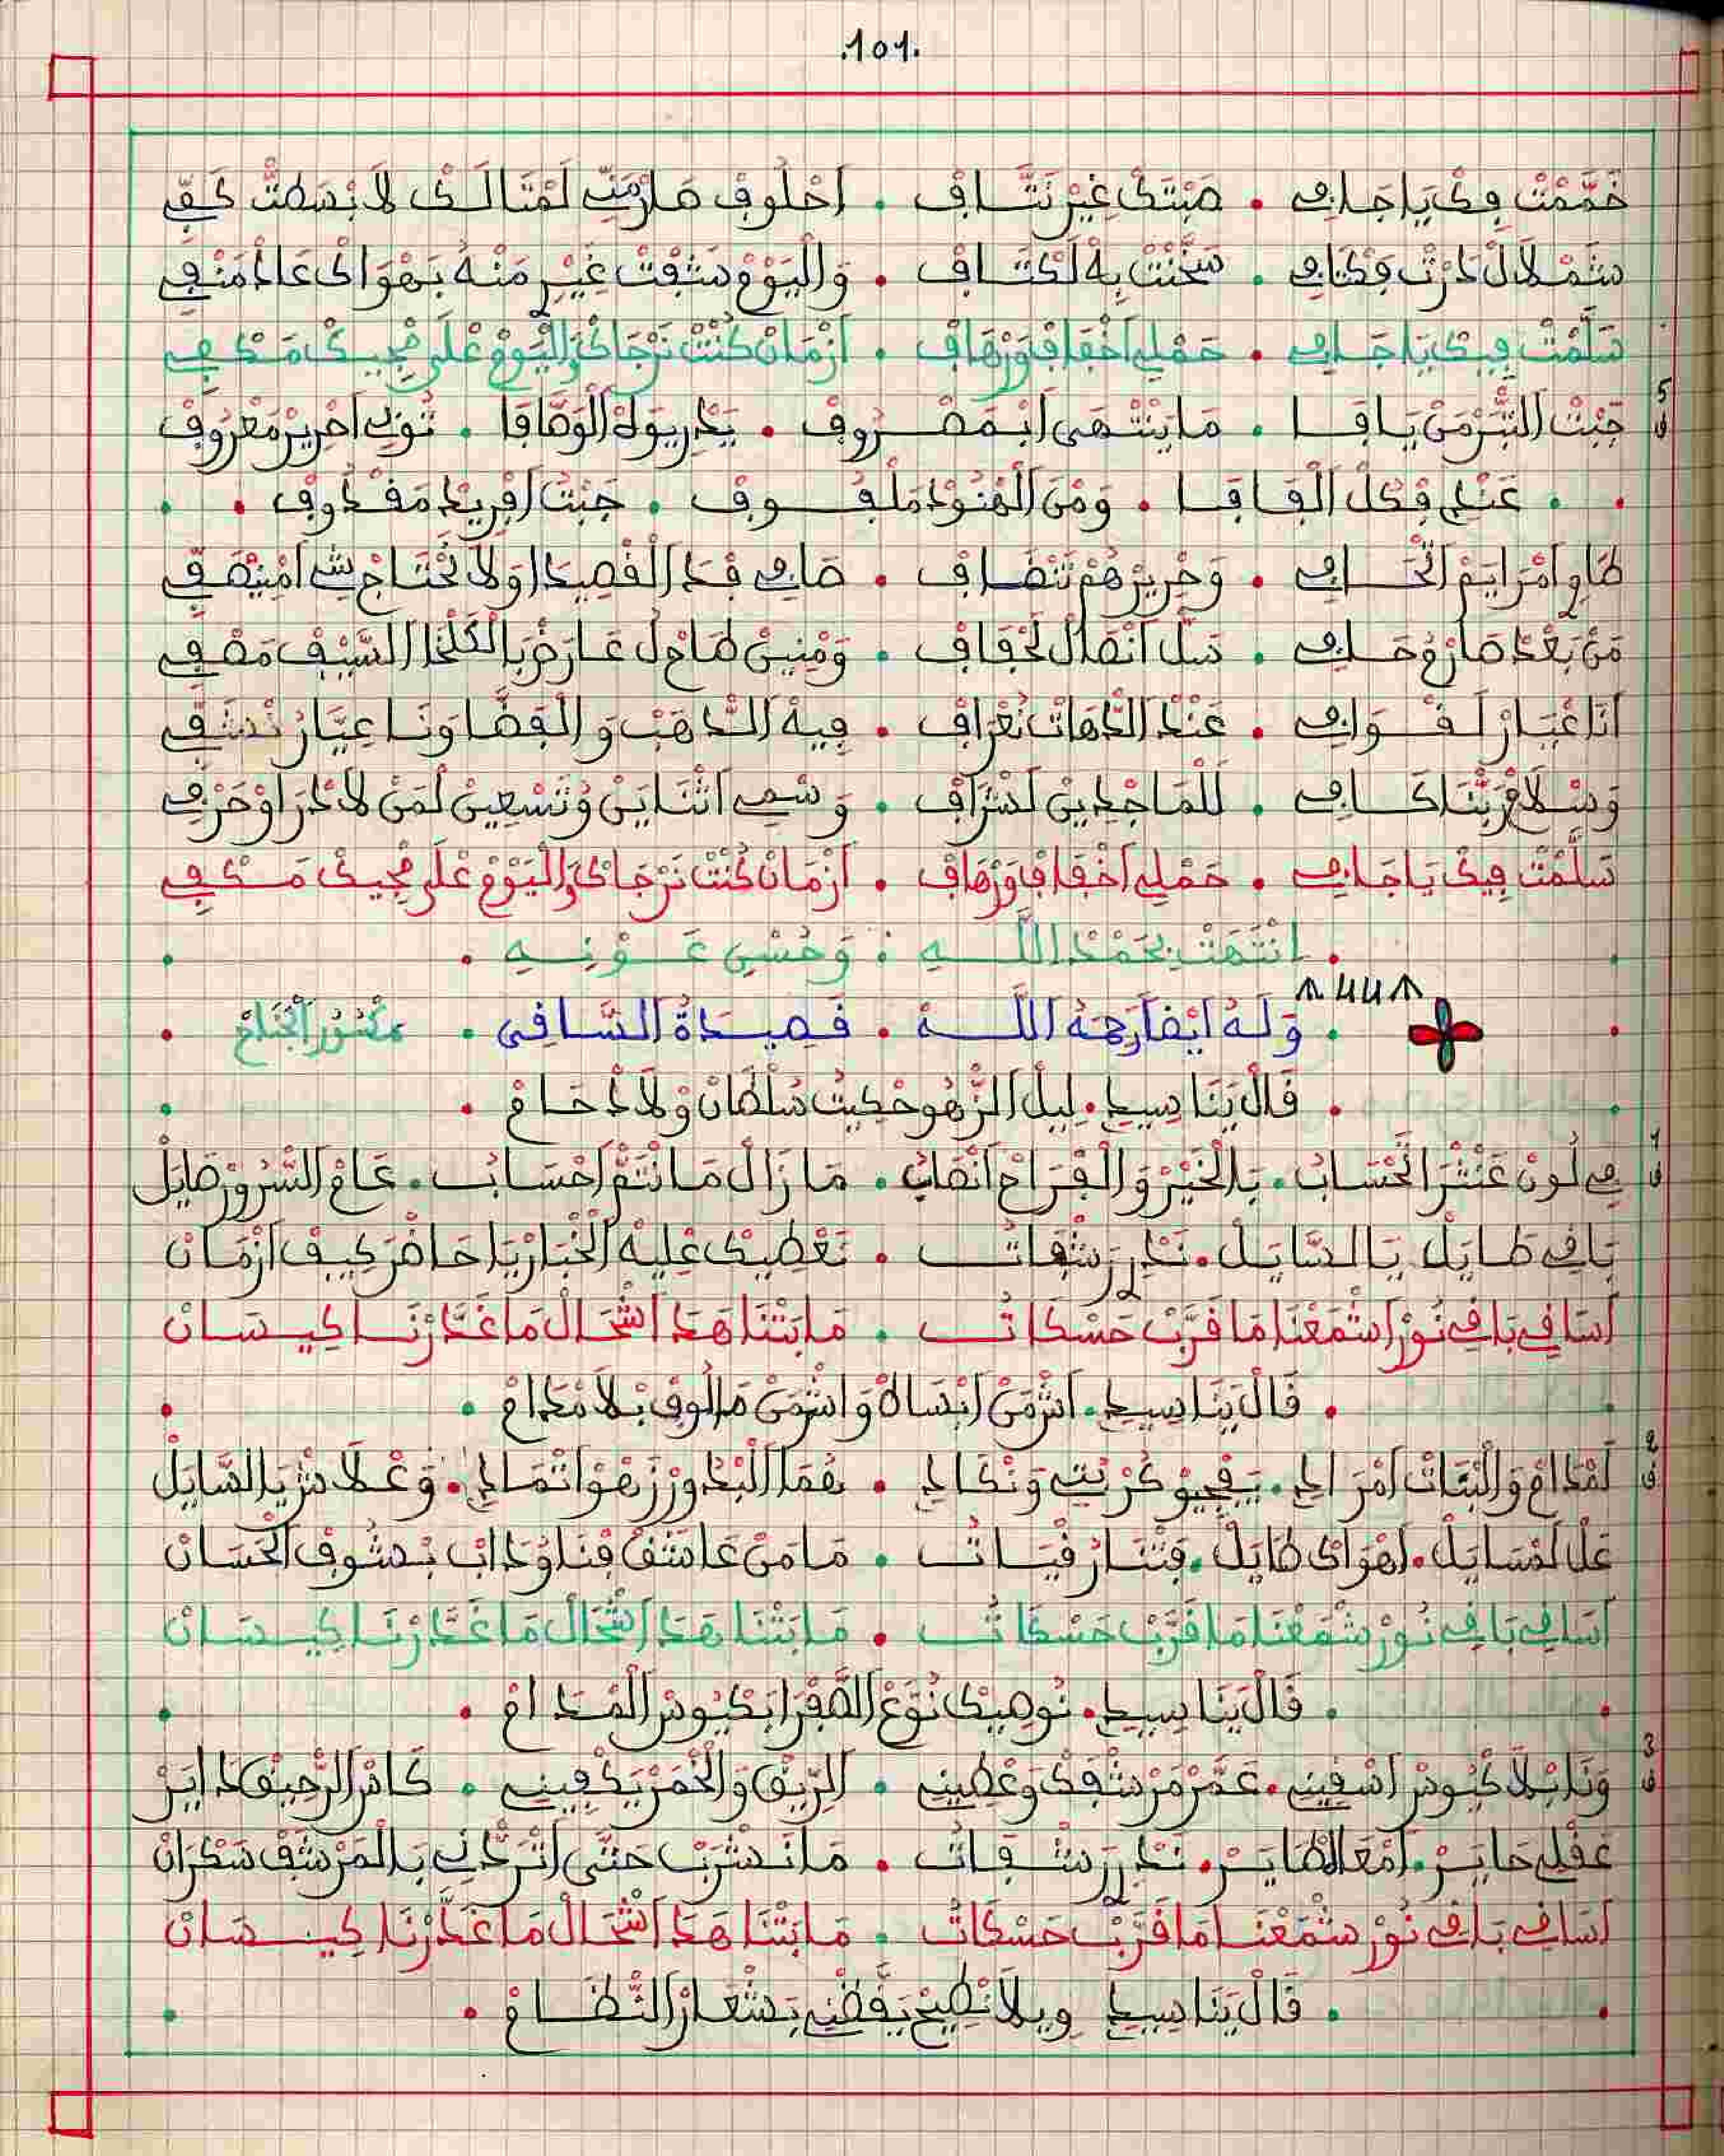 .101.
خَمَّمْتْ فِكْ يَا جَافِي • صَبْتَكْ غِيرْ نَتَّافْ • اَحْلُوفْ مَارْبَبّ لَمْثَالَكْ لاَ بْسَطْتْ كَفِّي
شَمْلاَلْ دَرْتْ فَكْتَافِي • سَخَّنْتْ بِهْ لَكْتَافْ • وَالْيَوْمْ شَفْتْ غِيرْ مَنْهُ بَهْوَاكْ عَادْ مَنْفِي
سَلَّمْتْ فِيكْ يَا جَافِي • حَمْلِي اَخْفَافْ وَرْهَافْ • اَزْمَانْ كُنْتْ نَرْجَاكْ وَالْيَوْمْ عْلَى مْجِيكْ مَكْفِي
5
ف جَبْتْ التّْبَرْ مَنْ يَاقَا • مَا يَنْتْهَى اَبْمَصْرُوفْ • يَدْرِيوَهْ الْوَصَّافَا • ثُوبْ اَحْرِيرْ مَعْرُوفْ
• عَنْدِي فْكُلّْ الْفَافَا • وَمْنَ الْهْنُودْ مَلْفُوفْ • جَبْتْ اَفْرِيدْ مَقْدُوفْ •
طَاوِي اَمْرَايَمْ اتْحَافِي • وَحْرِيرْهُمْ تَنْضَافْ • صَافِي فْدَ الْقْصِيدَا وَلاَ تَحْتَاجْ شِي اَمْنِيصَفّ
مَنْ بَعْدْ صَارَمْ حَافِي • سَلّْ اَنْصَالْ لَحْفَافْ • وَمْنِينْ طَاحْ لْ عَارَضْ بَالْكَلْخَا السَّيْفْ مَصْفِي
اَنَا عْبَارْ لَقْوَافِي • عَنْدْ الدّْهَاتْ نَعْرَافْ • فِيهْ الدّْهَبْ وَالْفَضَّا وَنَا عِيَّارْ نَسْتَفِّي
وَسْلاَمْ رَبّْنَا كَافِي • لَلْمَاجْدِينْ لَشْرَافْ • وَسْمِي اَثْنَايَنْ وَتَسْعِينْ لَمَنْ لاَ دْرَاوْ حَرْفِي
سَلَّمْتْ فِيكْ يَا جَافِي • حَمْلِي اَخْفَافْ وَرْهَافْ • اَزْمَانْ كُنْتْ نَرْجَاكْ وَالْيَوْمْ عْلَى مْجِيكْ مَكْفِي
• انْتَهَتْ بِحَمْدِ اللَّهِ : وَحُسْنِ عَوْنِهِ •
• وَلَهُ اَيْضًا رَحِمَهُ اللَّهُ • قَصِيدَةُ السَّاقِي • مَكْسُورْ الْجَنَاحْ •
• قَالْ يَنَا سِيدِي • لِيلْ الزّْهُو حْكِيتْ سُلْطَانْ وْلاَدْ حَامْ •
1
ف فِي لُونْ عَنْتْرَ الْحْسَابُ • بَالْخَيْرْ وَالْفْرَاحْ اَنْصَابُ • مَا زَالْ مَا نْتَمّْ اَحْسَابُ • عَامْ السّْرُورْ صَايَلْ
بَاقِي طَايَلْ يَا السَّايَلْ • نَدْرَرْ شْفَاتُ • نَعْطِيكْ عْلِيهْ الْخْبَارْ يَا حَاضَرْ كِيفْ اَزْمَانْ
اَسَاقِي بَاقِي نُورْ اَشْمَعْنَا مَا قَرَّبْ حَسْكَاتُ • مَا بَتْنَا هَدَا اشْحَالْ مَا غَدَّرْنَا كِيسَانْ
• قَالْ يَنَا سِيدِي • اَشْ مَنْ اَنْسَاهْ وَاشْ مَنْ مَالُوفْ بْلاَ مْدَامْ •
2
ف لَمْدَامْ وَالْبْنَاتْ اَمْرَادِي • يَفْجِيوْ كُرْبْتِي وَنْكَادِي • هُمَا الْبْدُورْ زَهْوْ اَثْمَادِي • وَعْلاَشْ يَا السَّايَلْ
عْلْ لَمْسَايَلْ • اَهْوَاكْ طَايَلْ • فَتْنَارْ قْيَاتُ • مَا مَنْ عَاشَقْ فْنَا وَدَابْ بْشُوفْ الْحْسَانْ
اَسَاقِي بَاقِي نُورْ شْمَعْنَا مَا قَرَّبْ حَسْكَاتُ • مَا بَتْنَا هَدَا اشْحَالْ مَا غَدَّرْنَا كِيسَانْ
• قَالْ يَنَا سِيدِي • نُوصِيكْ نُوَّعْ الصَّفْرَا بَكْيُوسْ الْمْدَامْ •
3
ف وَنَا بْلاَ كْيُوسْ اَسْقِينِي • عَمَّرْ مَرْشْفَكْ وَعْطِينِي • الرِّيقْ وَالْخْمَرْ يَكْفِينِي • كَاسْ الرّْحِيقْ دَايَرْ
عَقْلِي حَايَرْ • اَمْعَ الطَّايَرْ • نَدْرَرْ شْفَاتُ • مَا نَشْرَبْ حَتَّى اَتْرَدّْنِي بَالْمَرْشَفْ سَكْرَانْ
اَسَاقِي بَاقِي نُورْ شْمَعْنَا مَا قَرَّبْ حَسْكَاتُ • مَا بَتْنَا هَدَا اشْحَالْ مَا غَدَّرْنَا كِيسَانْ
• قَالْ يَنَا سِيدِي وِيلاَ نْطِيحْ يَقَّضْنِي بَشْعَارْ النّْظَامْ •